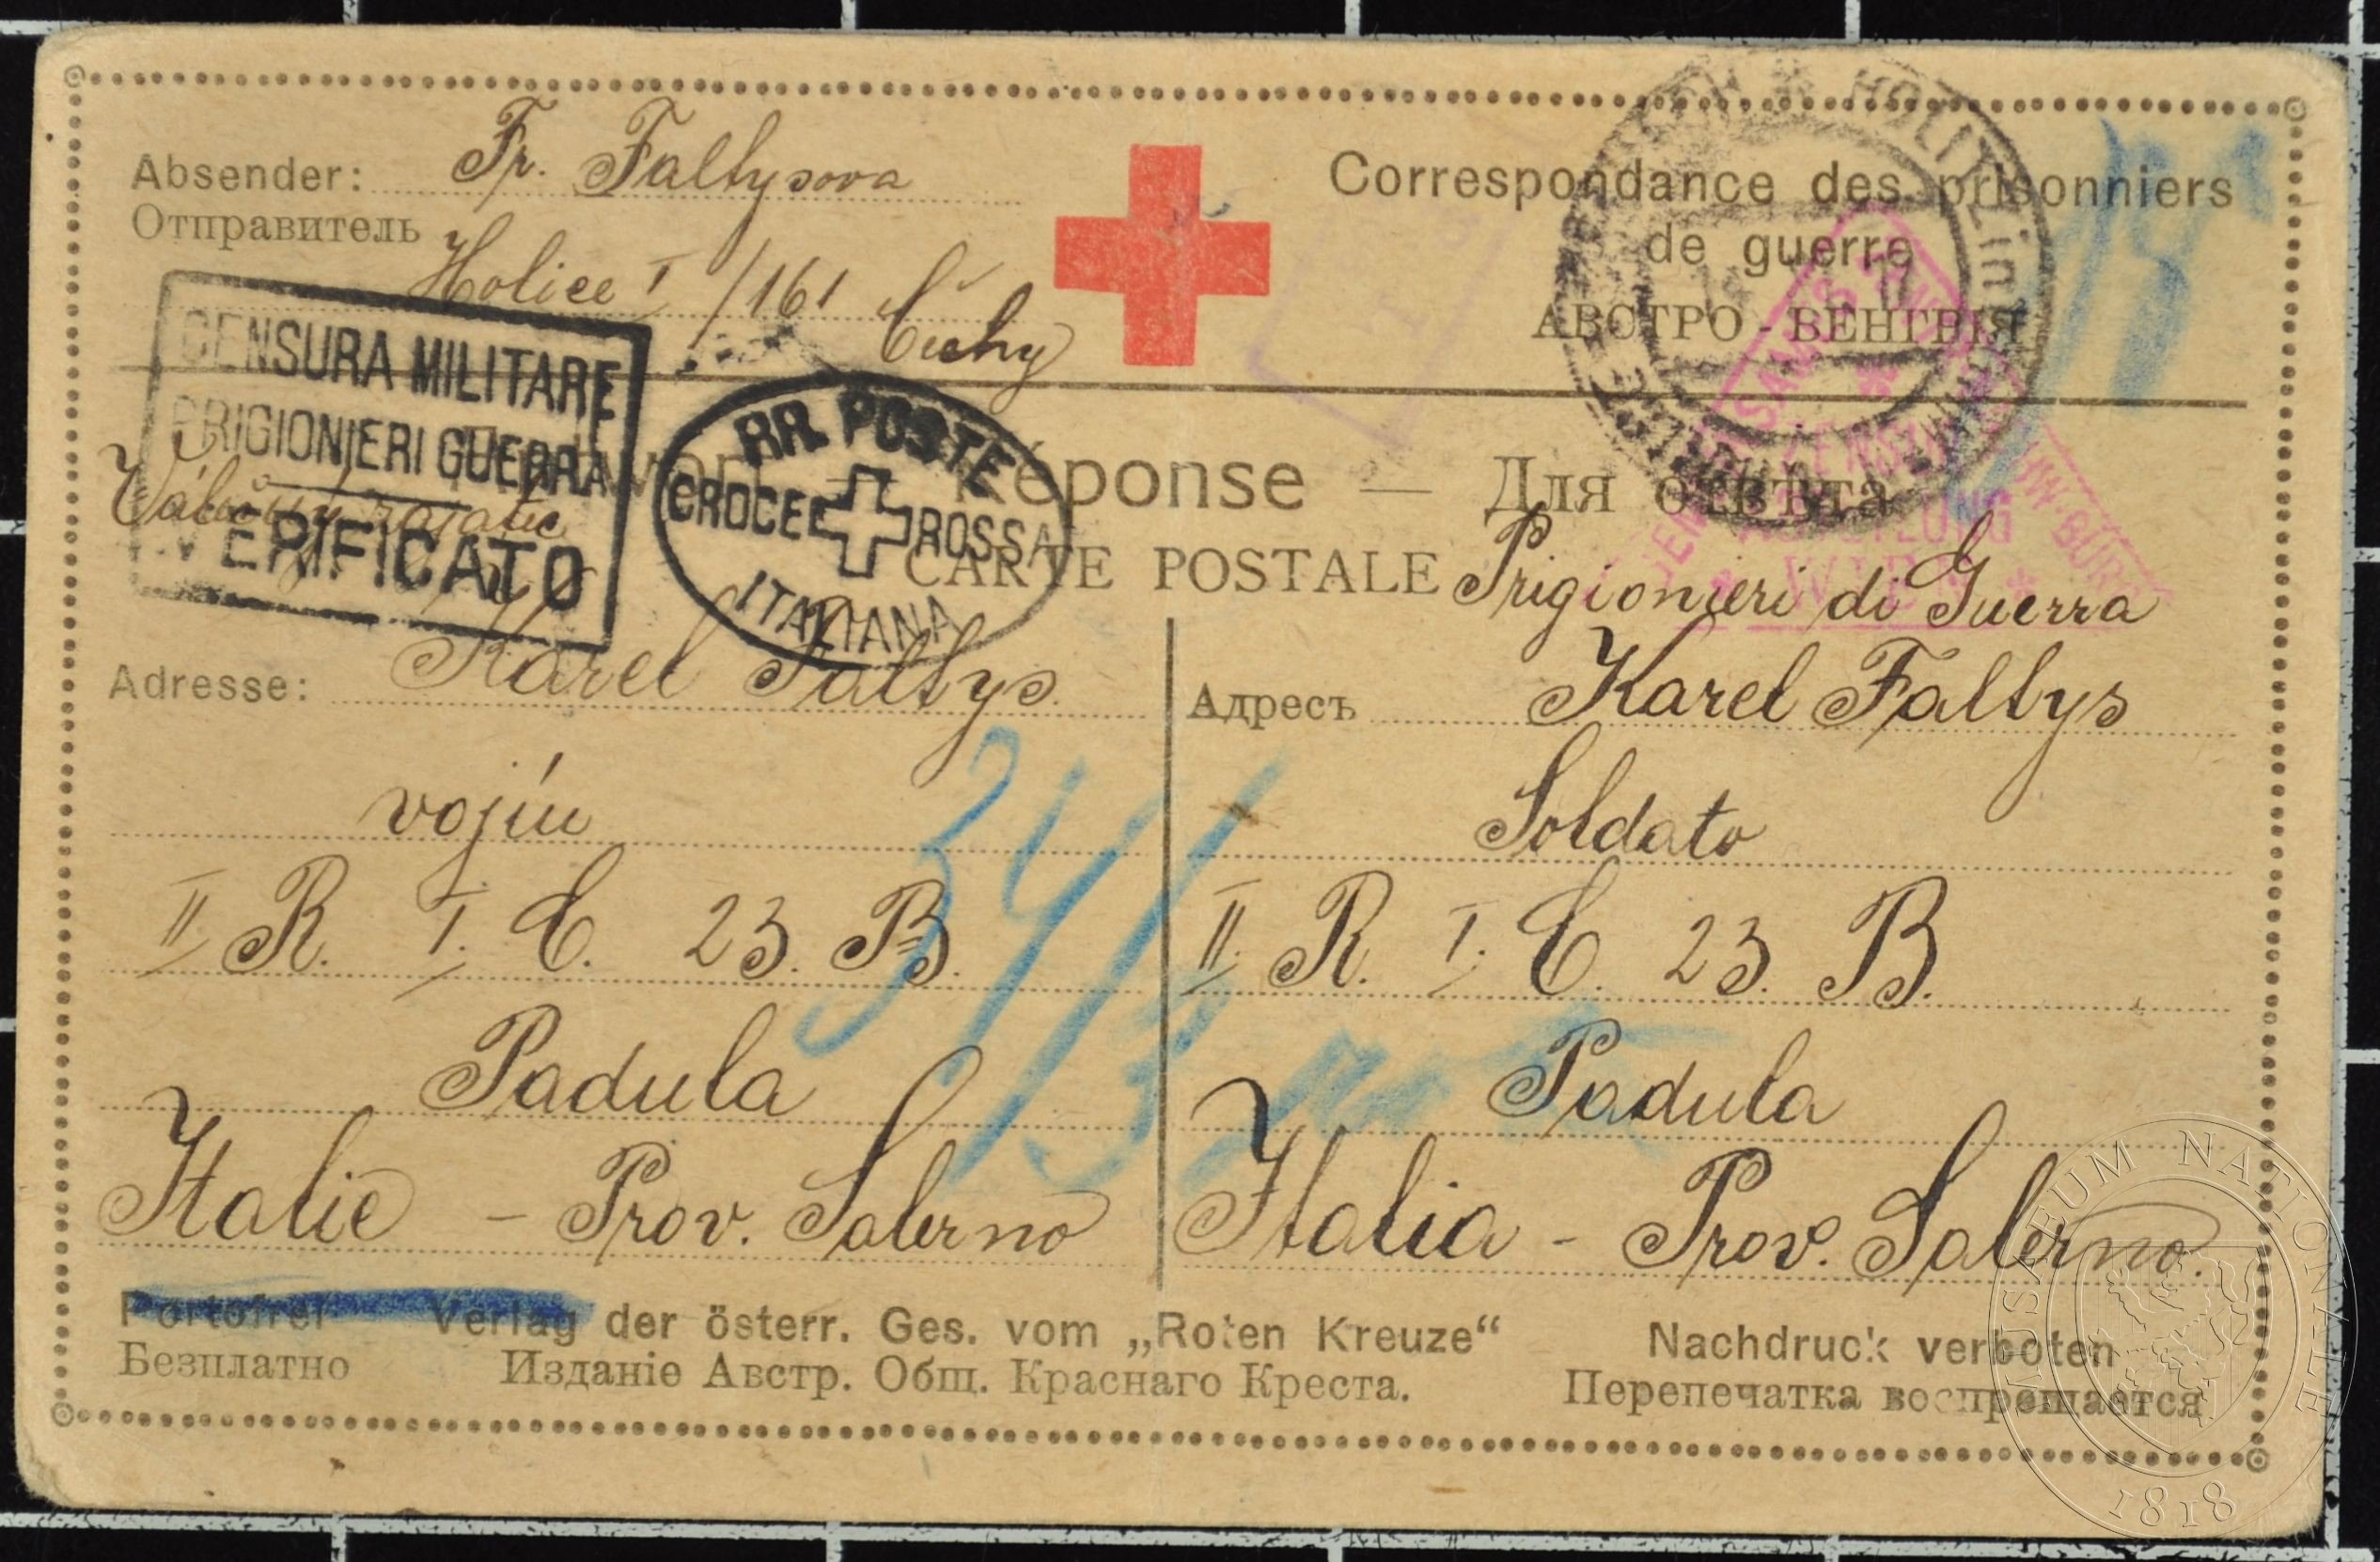 Absender: Fr. Faltysova
Отправитель
Holice I/161 Čechy
Correspondance des prisonniers
de guerre
АВСТРО-ВЕНГРІЯ
CENSURA MILITARE
PRIGIONIERI GUERRA
VERIFICATO
RR. POSTE
CROCE ROSSA
ITALIANA
HOLITZ in
Réponse — Для отвѣта
CARTE POSTALE
Válečný zajatec
Prigionieri di Guerra
Adresse: Karel Faltys.
vojín
II R. I. C. 23. B.
Padula
Italie - Prov. Salerno
Адресъ Karel Faltys
Soldato
II. R. I. C. 23. B.
Padula
Italia - Prov. Salerno.
341
Portofrei Verlag der österr. Ges. vom „Roten Kreuze“ Nachdruck verboten
Безплатно Изданіе Австр. Общ. Краснаго Креста. Перепечатка воспрещается
MUSAEUM NATIONALE
1818